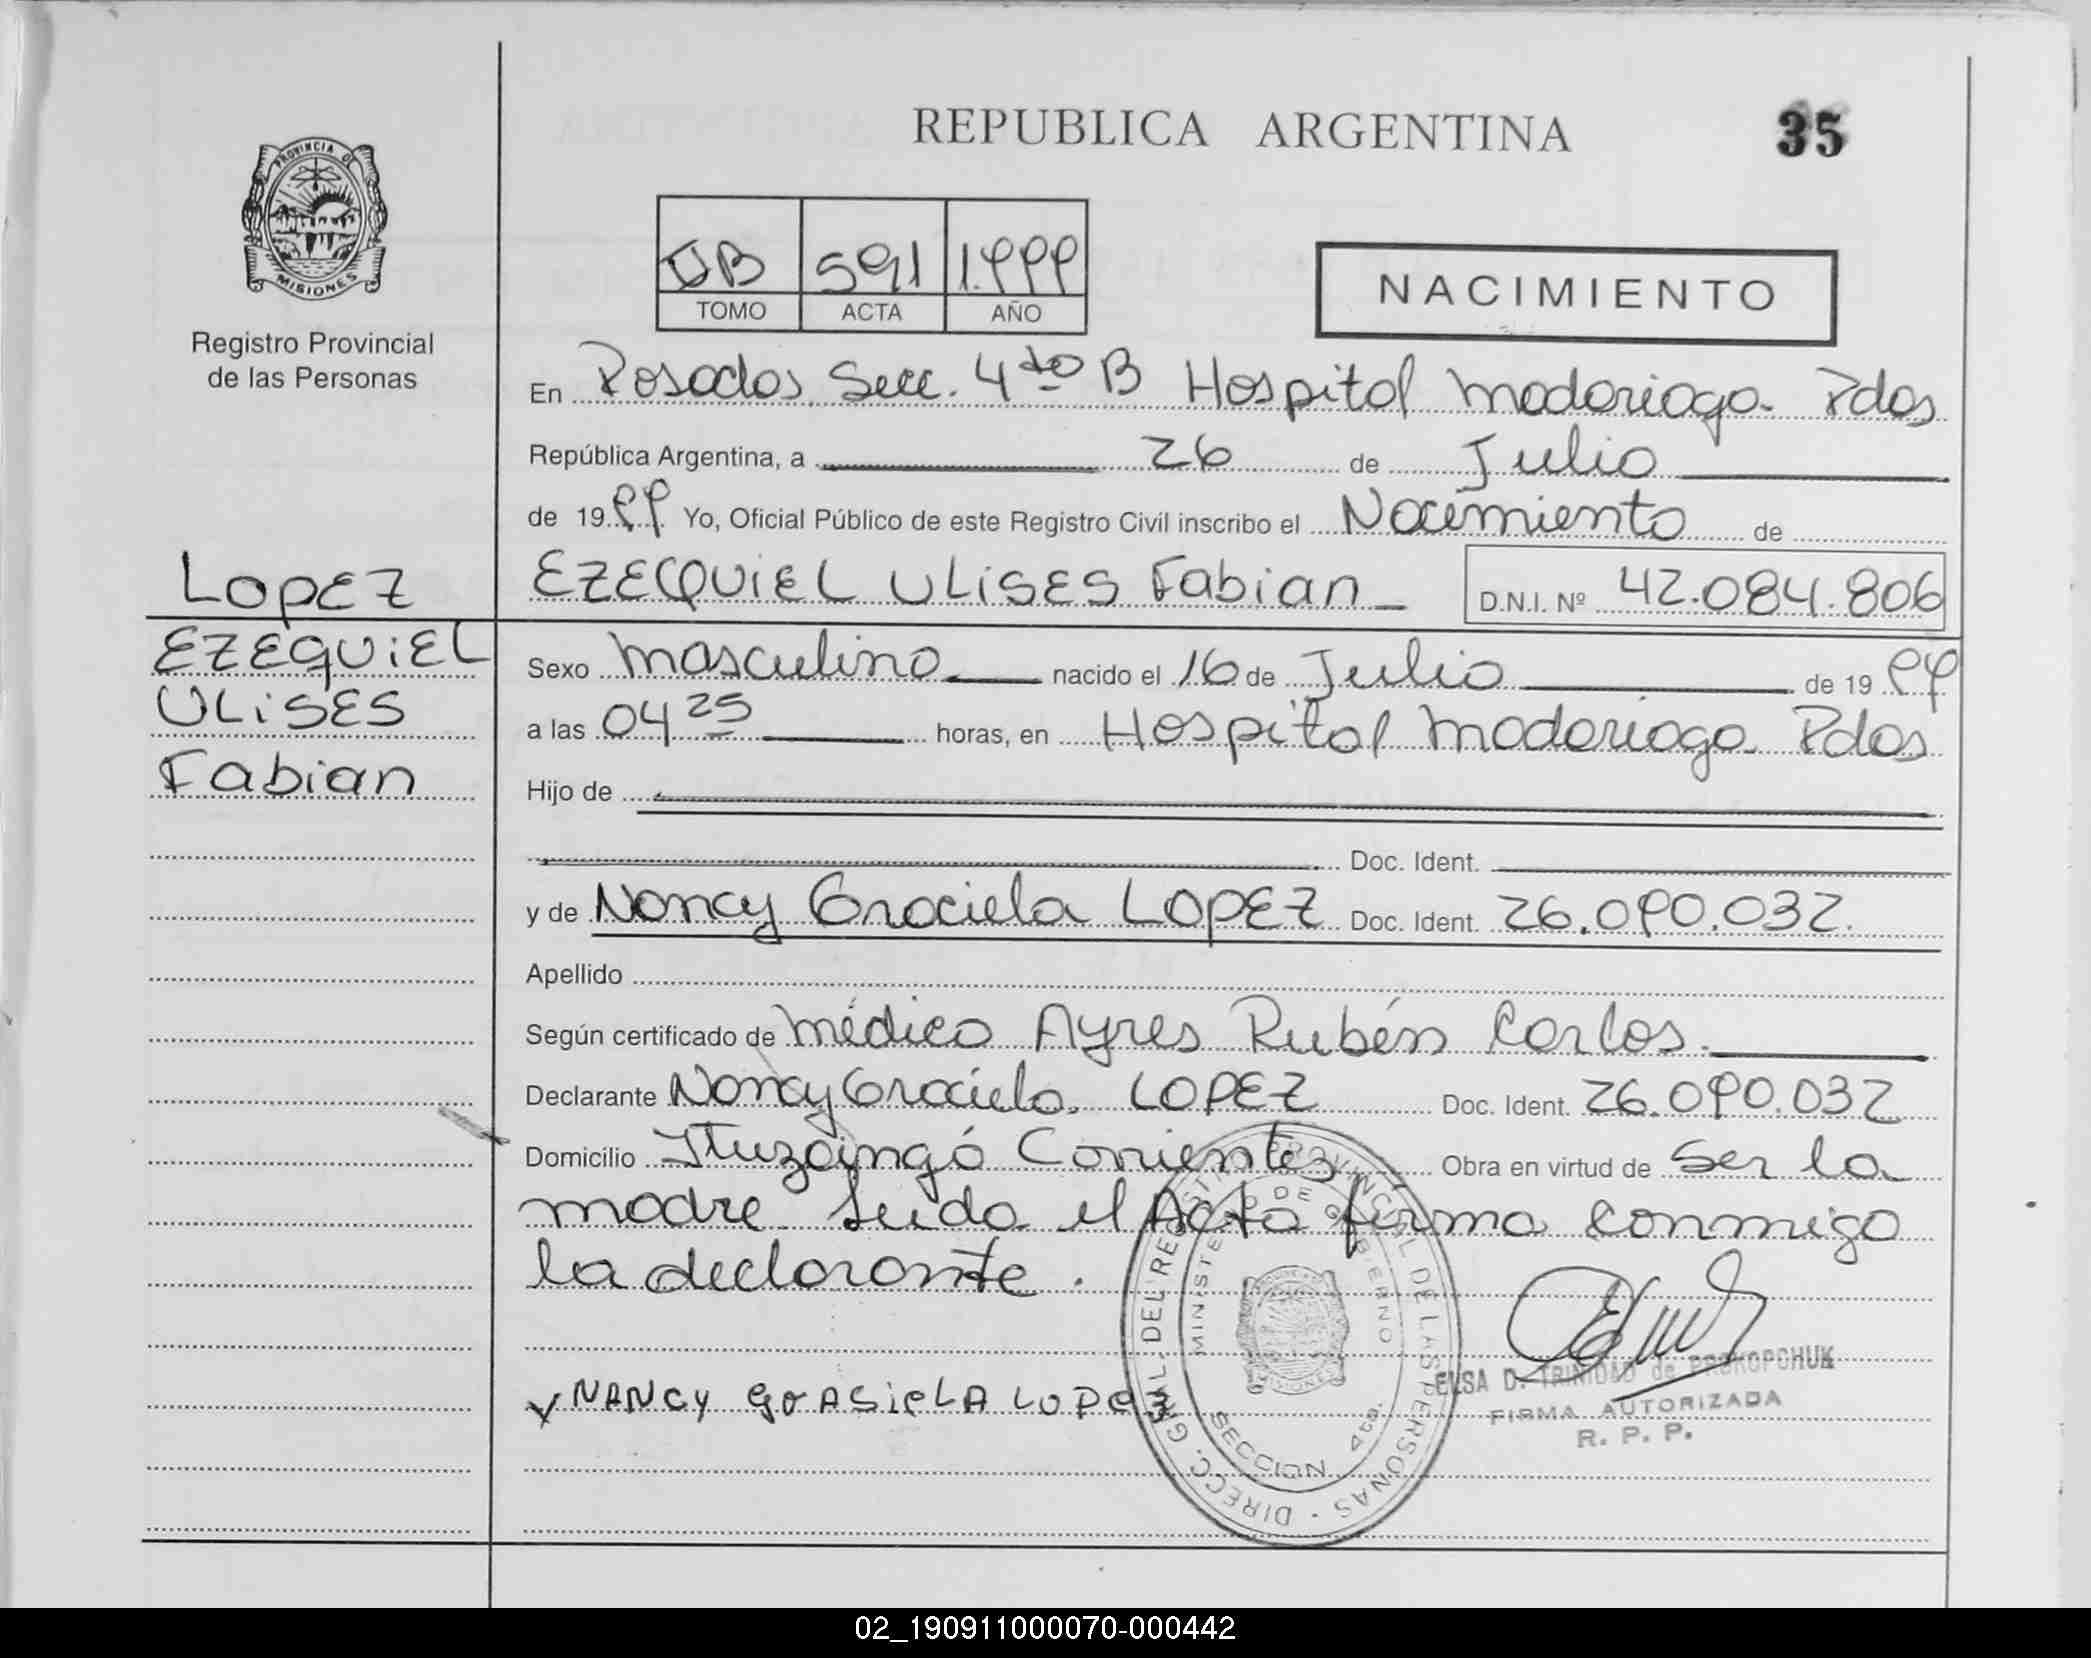 REPUBLICA ARGENTINA
35
PROVINCIA DE
MISIONES
Registro Provincial
de las Personas
IIB 591 1.999
TOMO ACTA AÑO
NACIMIENTO
En Posadas Secc. 4ta B Hospital Madariaga Pdas
República Argentina, a 26 de Julio
de 1999 Yo, Oficial Público de este Registro Civil inscribo el Nacimiento de
EZEQUIEL ULISES Fabian D.N.I. Nº 42.084.806
LOPEZ
EZEQUIEL
ULISES
Fabian
Sexo masculino nacido el 16 de Julio de 1999
a las 04 25 horas, en Hospital Madariaga Pdas
Hijo de
Doc. Ident.
y de Nancy Graciela LOPEZ Doc. Ident. 26.090.032.
Apellido
Según certificado de médico Ayres Rubén Carlos.
Declarante Nancy Graciela LOPEZ Doc. Ident. 26.090.032
Domicilio Ituzaingó Corrientes Obra en virtud de Ser la
madre Leida el Acta firma conmigo
la declarante.
NANCY GRASIELA LOPEZ
DIRECC. GRAL. DEL REGISTRO PROVINCIAL DE LAS PERSONAS
MINISTERIO DE GOBIERNO
SECCION 4ta.
ELSA D. TRINIDAD de PROKOPCHUK
FIRMA AUTORIZADA
R. P. P.
02_190911000070-000442